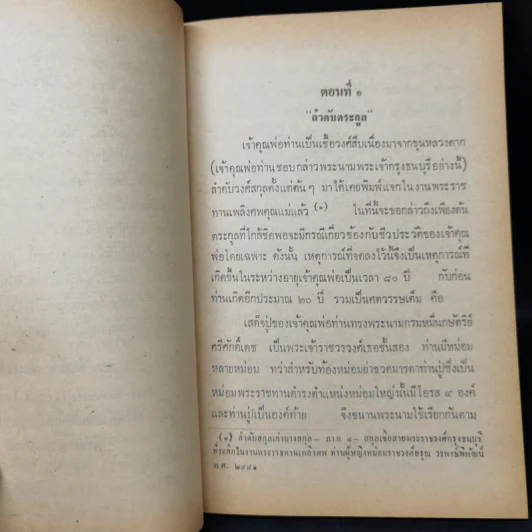 ตอนที่ ๑
"ลำดับตระกูล"
เจ้าคุณพ่อท่านเป็นเชื้อวงศ์สืบเนื่องมาจากขุนหลวงตาก
(เจ้าคุณพ่อท่านชอบกล่าวพระนามพระเจ้ากรุงธนบุรีอย่างนี้)
ลำดับวงศ์สกุลตั้งแต่ต้นๆ มาได้เคยพิมพ์แจกในงานพระราช
ทานเพลิงศพคุณแม่แล้ว (๑) ในที่นี้จะขอกล่าวถึงเพียงต้น
ตระกูลที่ใกล้ชิดพอจะมีกรณีเกี่ยวข้องกับชีวประวัติของเจ้าคุณ
พ่อโดยเฉพาะ ดังนั้น เหตุการณ์ที่จดลงไว้นี้จึงเป็นเหตุการณ์ที่
เกิดขึ้นในระหว่างอายุเจ้าคุณพ่อเป็นเวลา ๘๐ ปี กับก่อน
ท่านเกิดอีกประมาณ ๒๐ ปี รวมเป็นศตวรรษเต็ม คือ
เสด็จปู่ของเจ้าคุณพ่อท่านทรงพระนามกรมหมื่นกษัตริย์
ศรีศักดิ์เดช เป็นพระเจ้าราชวรวงศ์เธอชั้นสอง ท่านมีหม่อม
หลายหม่อม ทว่าสำหรับท้องหม่อมย่าชวดมารดาท่านปู่ซึ่งเป็น
หม่อมพระราชทานดำรงตำแหน่งหม่อมใหญ่นั้นมีโอรส ๔ องค์
และท่านปู่เป็นองค์ท้าย จึงขนานพระนามใช้เรียกกันตาม
(๑) ลำดับสกุลเก่าบางสกุล– ภาค ๔– สกุลเชื้อสายพระราชวงศ์กรุงธนบุรี
ที่ระลึกในงานพระราชทานเพลิงศพ ท่านผู้หญิงหม่อมราชวงศ์อรุณ วรพงษ์พิพัฒน์
พ.ศ. ๒๔๘๑